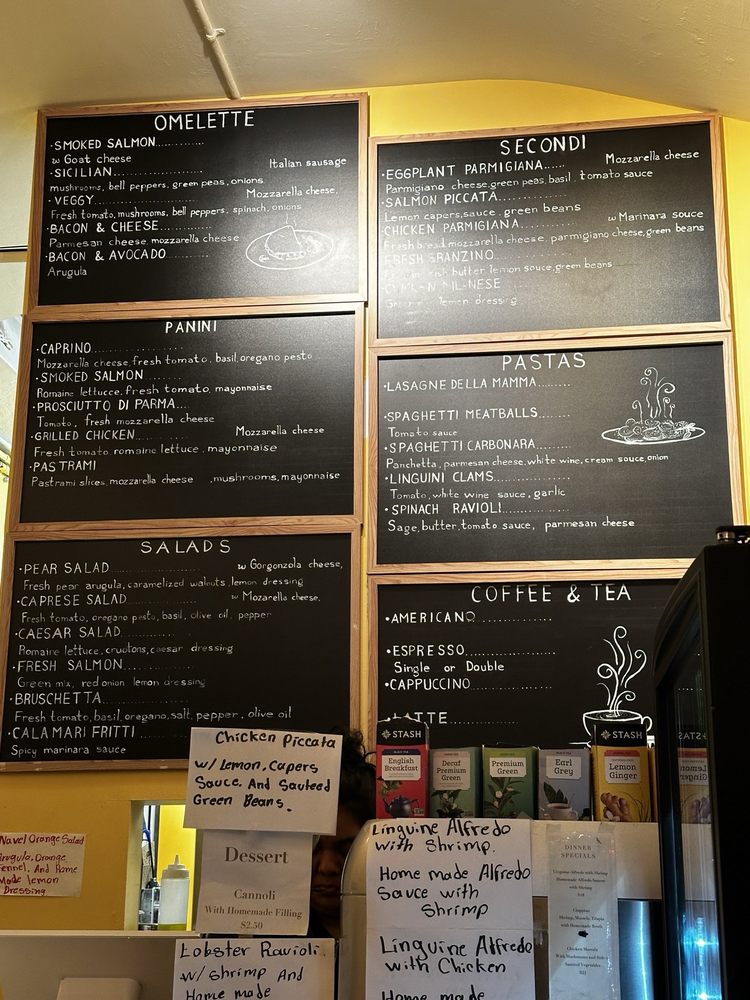 OMELETTE
·SMOKED SALMON............
w Goat cheese
·SICILIAN........................ Italian sausage
mushrooms, bell peppers, green peas, onions
·VEGGY........................... Mozzarella cheese,
Fresh tomato, mushrooms, bell peppers, spinach, onions
·BACON & CHEESE..............
Parmesan cheese, mozzarella cheese
·BACON & AVOCADO...........
Arugula
PANINI
·CAPRINO.......................
Mozzarella cheese, fresh tomato, basil, oregano pesto
·SMOKED SALMON..............
Romaine lettucce, fresh tomato, mayonnaise
·PROSCIUTTO DI PARMA....
Tomato, fresh mozzarella cheese
·GRILLED CHICKEN............. Mozzarella cheese
Fresh tomato, romaine lettuce, mayonnaise
·PASTRAMI
Pastrami slices, mozzarella cheese ,mushrooms, mayonnaise
SALADS
·PEAR SALAD...................... w Gorgonzola cheese,
Fresh pear, arugula, caramelized walnuts, lemon dressing
·CAPRESE SALAD................ w Mozarella cheese,
Fresh tomato, oregano pesto, basil, olive oil, pepper
·CAESAR SALAD................
Romaine lettuce, cruotons, caesar dressing
·FRESH SALMON................
Green mix, red onion lemon dressing
·BRUSCHETTA...................
Fresh tomato, basil, oregano, salt, pepper, olive oil
·CALAMARI FRITTI.............
Spicy marinara sauce
SECONDI
·EGGPLANT PARMIGIANA...... Mozzarella cheese
Parmigiano cheese, green peas, basil, tomato sauce
·SALMON PICCATA..............
Lemon capers, sauce, green beans
·CHICKEN PARMIGIANA......... w Marinara souce
Fresh bread, mozzarella cheese, parmigiano cheese, green beans
FRESH BRANZINO..............
butter lemon souce, green beans
lemon dressing
PASTAS
·LASAGNE DELLA MAMMA........
·SPAGHETTI MEATBALLS.......
Tomato sauce
·SPAGHETTI CARBONARA........
Panchetta, parmesan cheese, white wine, cream souce, onion
·LINGUINI CLAMS................
Tomato, white wine sauce, garlic
·SPINACH RAVIOLI..............
Sage, butter, tomato sauce, parmesan cheese
COFFEE & TEA
·AMERICANO................
·ESPRESSO..................
Single or Double
·CAPPUCCINO................
LATTE
STASH
English Breakfast
Decaf Premium Green
Premium Green
Earl Grey
STASH
Lemon Ginger
Chicken Piccata
w/ Lemon, Capers
Sauce. And Sauteed
Green Beans.
Dessert
Cannoli
With Homemade Filling
$2.50
Navel Orange Salad
Arugula, Orange,
Fennel, And Home
Made lemon
Dressing
Lobster Ravioli
w/ shrimp And
Home made
Linguine Alfredo
with Shrimp.
Home made Alfredo
Sauce with
Shrimp
Linguine Alfredo
with Chicken
Home made
DINNER
SPECIALS
Linguine Alfredo with Shrimp
Homemade Alfredo Sauce
with Shrimp
Cioppino
Shrimp, Mussels, Tilapia
with Homemade Broth
Chicken Marsala
With Mushrooms and
Sauteed Vegetables